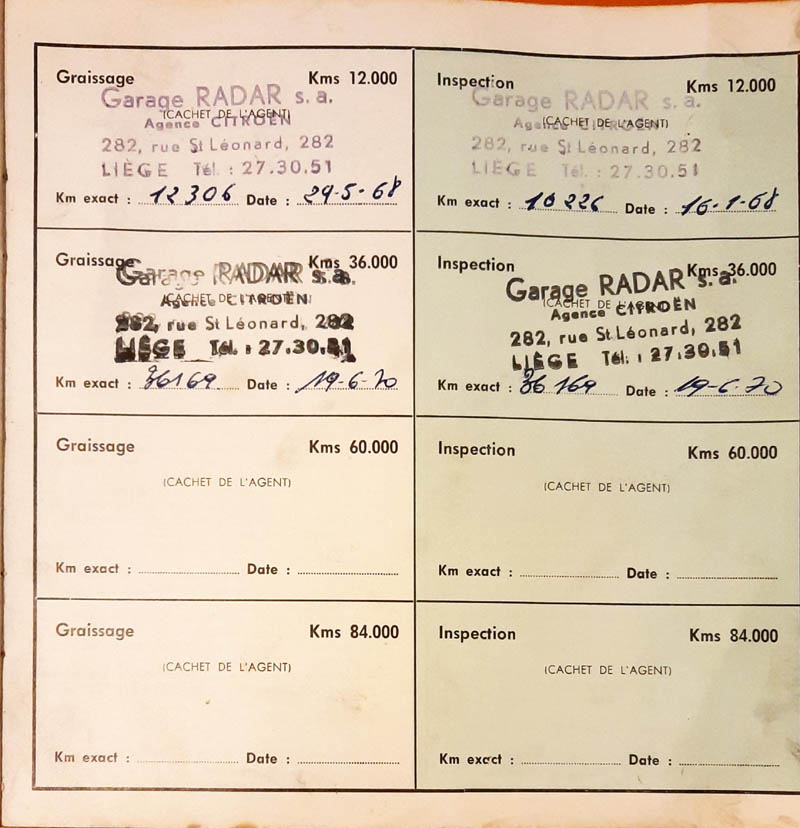 Graissage Kms 12.000
Garage RADAR s. a.
(CACHET DE L'AGENT)
Agence CITROËN
282, rue St Léonard, 282
LIÈGE Tél. : 27.30.51
Km exact : 12306 Date : 29-5-68
Inspection Kms 12.000
Garage RADAR s. a.
(CACHET DE L'AGENT)
Agence CITROËN
282, rue St Léonard, 282
LIÈGE Tél. : 27.30.51
Km exact : 10226 Date : 16-1-68
Graissage Kms 36.000
Garage RADAR s. a.
(CACHET DE L'AGENT)
Agence CITROËN
282, rue St Léonard, 282
LIÈGE Tél. : 27.30.51
Km exact : 36169 Date : 19-6-70
Inspection Kms 36.000
Garage RADAR s. a.
(CACHET DE L'AGENT)
Agence CITROËN
282, rue St Léonard, 282
LIÈGE Tél. : 27.30.51
Km exact : 36169 Date : 19-6-70
Graissage Kms 60.000
(CACHET DE L'AGENT)
Km exact : Date :
Inspection Kms 60.000
(CACHET DE L'AGENT)
Km exact : Date :
Graissage Kms 84.000
(CACHET DE L'AGENT)
Km exact : Date :
Inspection Kms 84.000
(CACHET DE L'AGENT)
Km exact : Date :